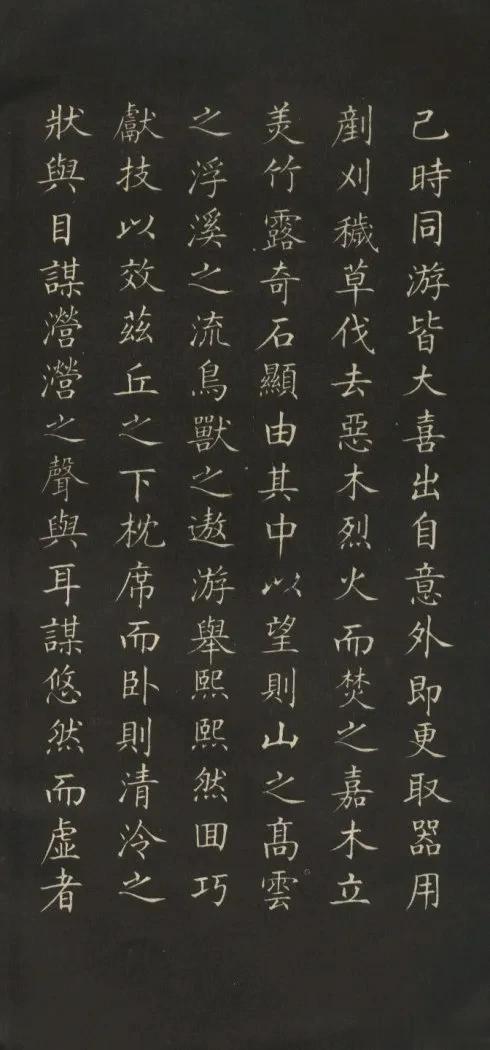 己時同游皆大喜出自意外即更取器用
剷刈穢草伐去惡木烈火而焚之嘉木立
美竹露奇石顯由其中以望則山之高雲
之浮溪之流鳥獸之遨游舉熙熙然回巧
獻技以效茲丘之下枕席而卧則清泠之
狀與目謀瀯瀯之聲與耳謀悠然而虛者